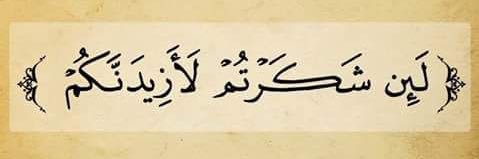 لَئِن شَكَرۡتُمۡ لَأَزِيدَنَّكُمۡ